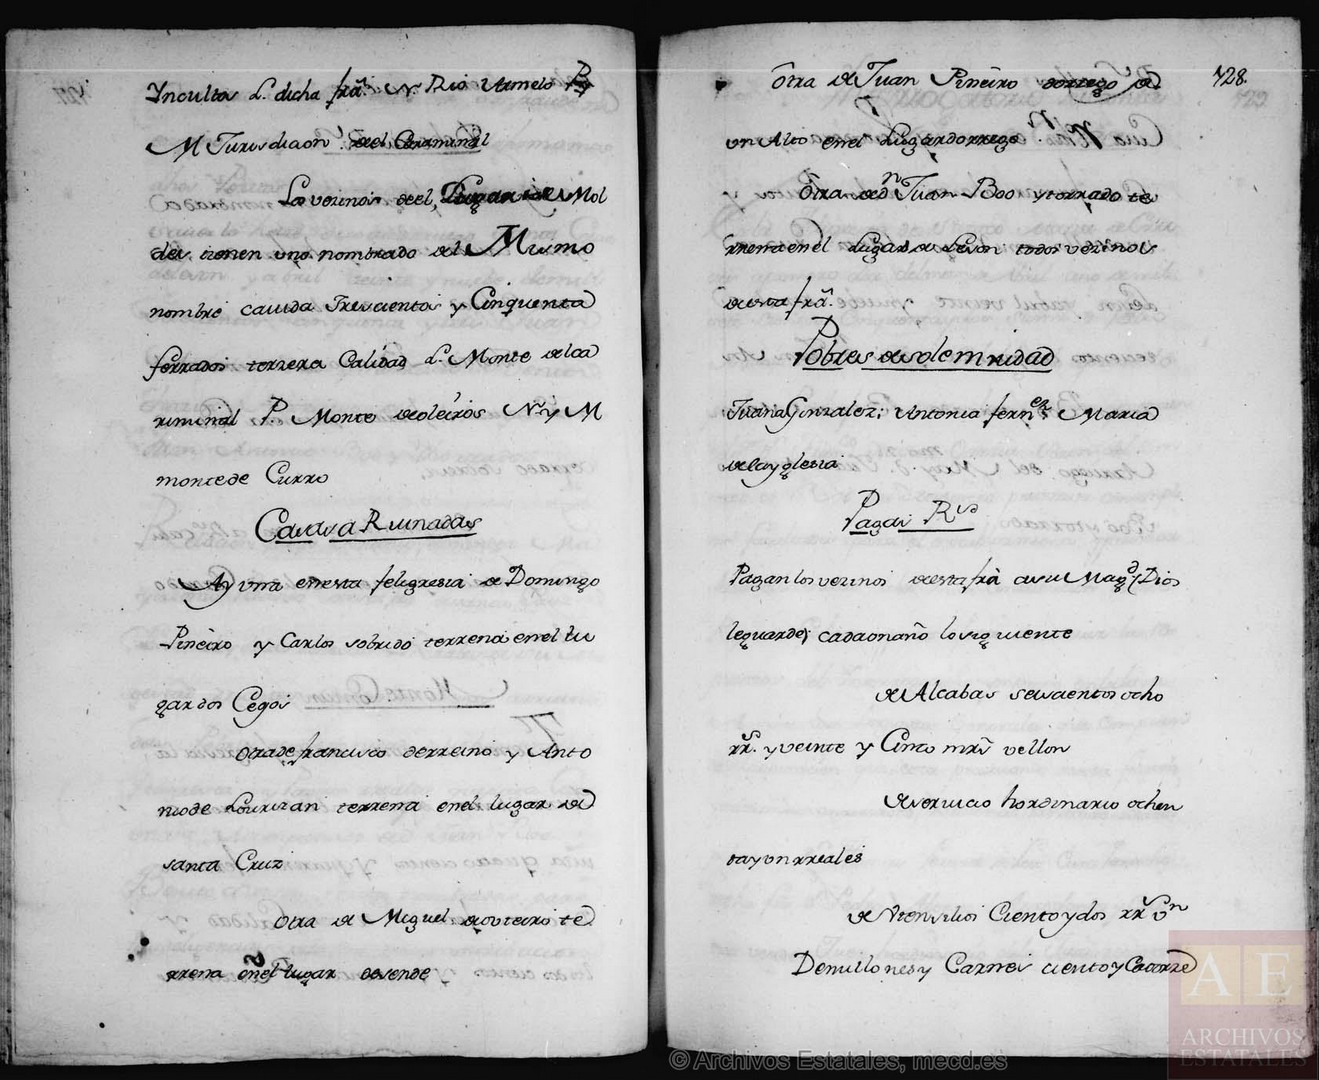 Yncultos L. dicha frâ. N. Rio Armelo P.
M Jurisdicion del Caraminal
Los vecinos de el Lugar de Mol
des tienen uno nombrado del Mismo
nombre cavida Trescientos y Cinquenta
ferrados terzera Calidad L. Monte de la Ca
raminal P. Monte de oleiros N. y M
monte de Curro
Casas a Ruinadas
Ay una en esta feligresia de Domingo
Piñeiro y Carlos sobrido terrena en el lu
gar dos Cegos
Otra de francisco deRreino y Anto
nio de Lourizan terrena en el lugar de
santa Cruz
Otra de Miguel de outeiro te
rrena en el lugar desende
Otra de Juan Piñeiro dorrego de
un Alto en el Lugar dorrego
Otra de dn Juan Boo y torrado te
rrena en el Lugar de Leson todos vecinos
de esta frâ.
Pobres de solemnidad
Juana Gonzalez; Antonia fernez Maria
de la yglesia
Pagas Rs
Pagan los vecinos de esta frâ a su Magd (Dios
le guarde) cada un año lo siguiente
de Alcabas seiscientos ocho
rrs. y veinte y Cinco mrs vellon
de servicio hordinario ochen
ta y un rreales
de Utensilios Ciento y dos rrs vn
De millones y Carnes ciento y Catorze
428.
429
A E
ARCHIVOS
ESTATALES
© Archivos Estatales, mecd.es